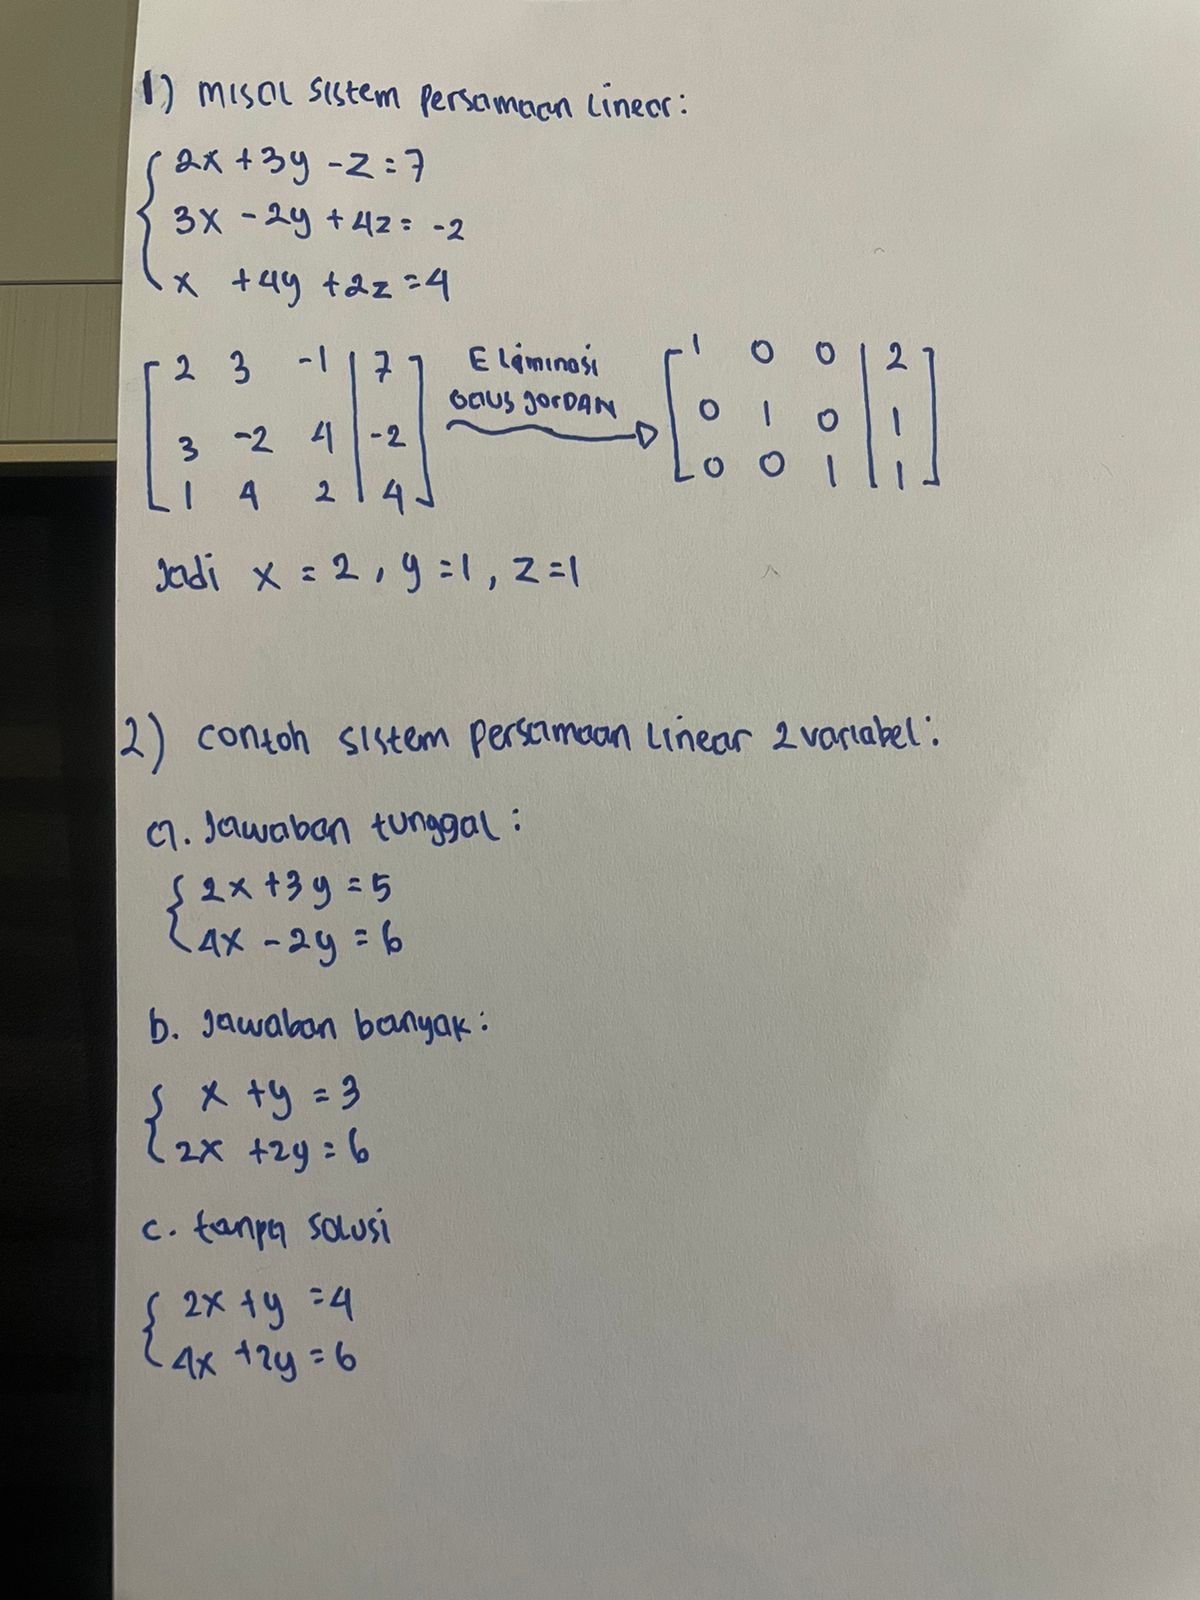 1) misal sistem persamaan linear:
2x + 3y - z = 7
3x - 2y + 4z = -2
x + 4y + 2z = 4
2 3 -1 | 7
3 -2 4 | -2
1 4 2 | 4
Eliminasi
Gaus JorDAN
1 0 0 | 2
0 1 0 | 1
0 0 1 | 1
Jadi x = 2, y = 1, z = 1
2) contoh sistem persamaan linear 2 variabel:
a. Jawaban tunggal:
2x + 3y = 5
4x - 2y = 6
b. Jawaban banyak:
x + y = 3
2x + 2y = 6
c. tanpa solusi
2x + y = 4
4x + 2y = 6